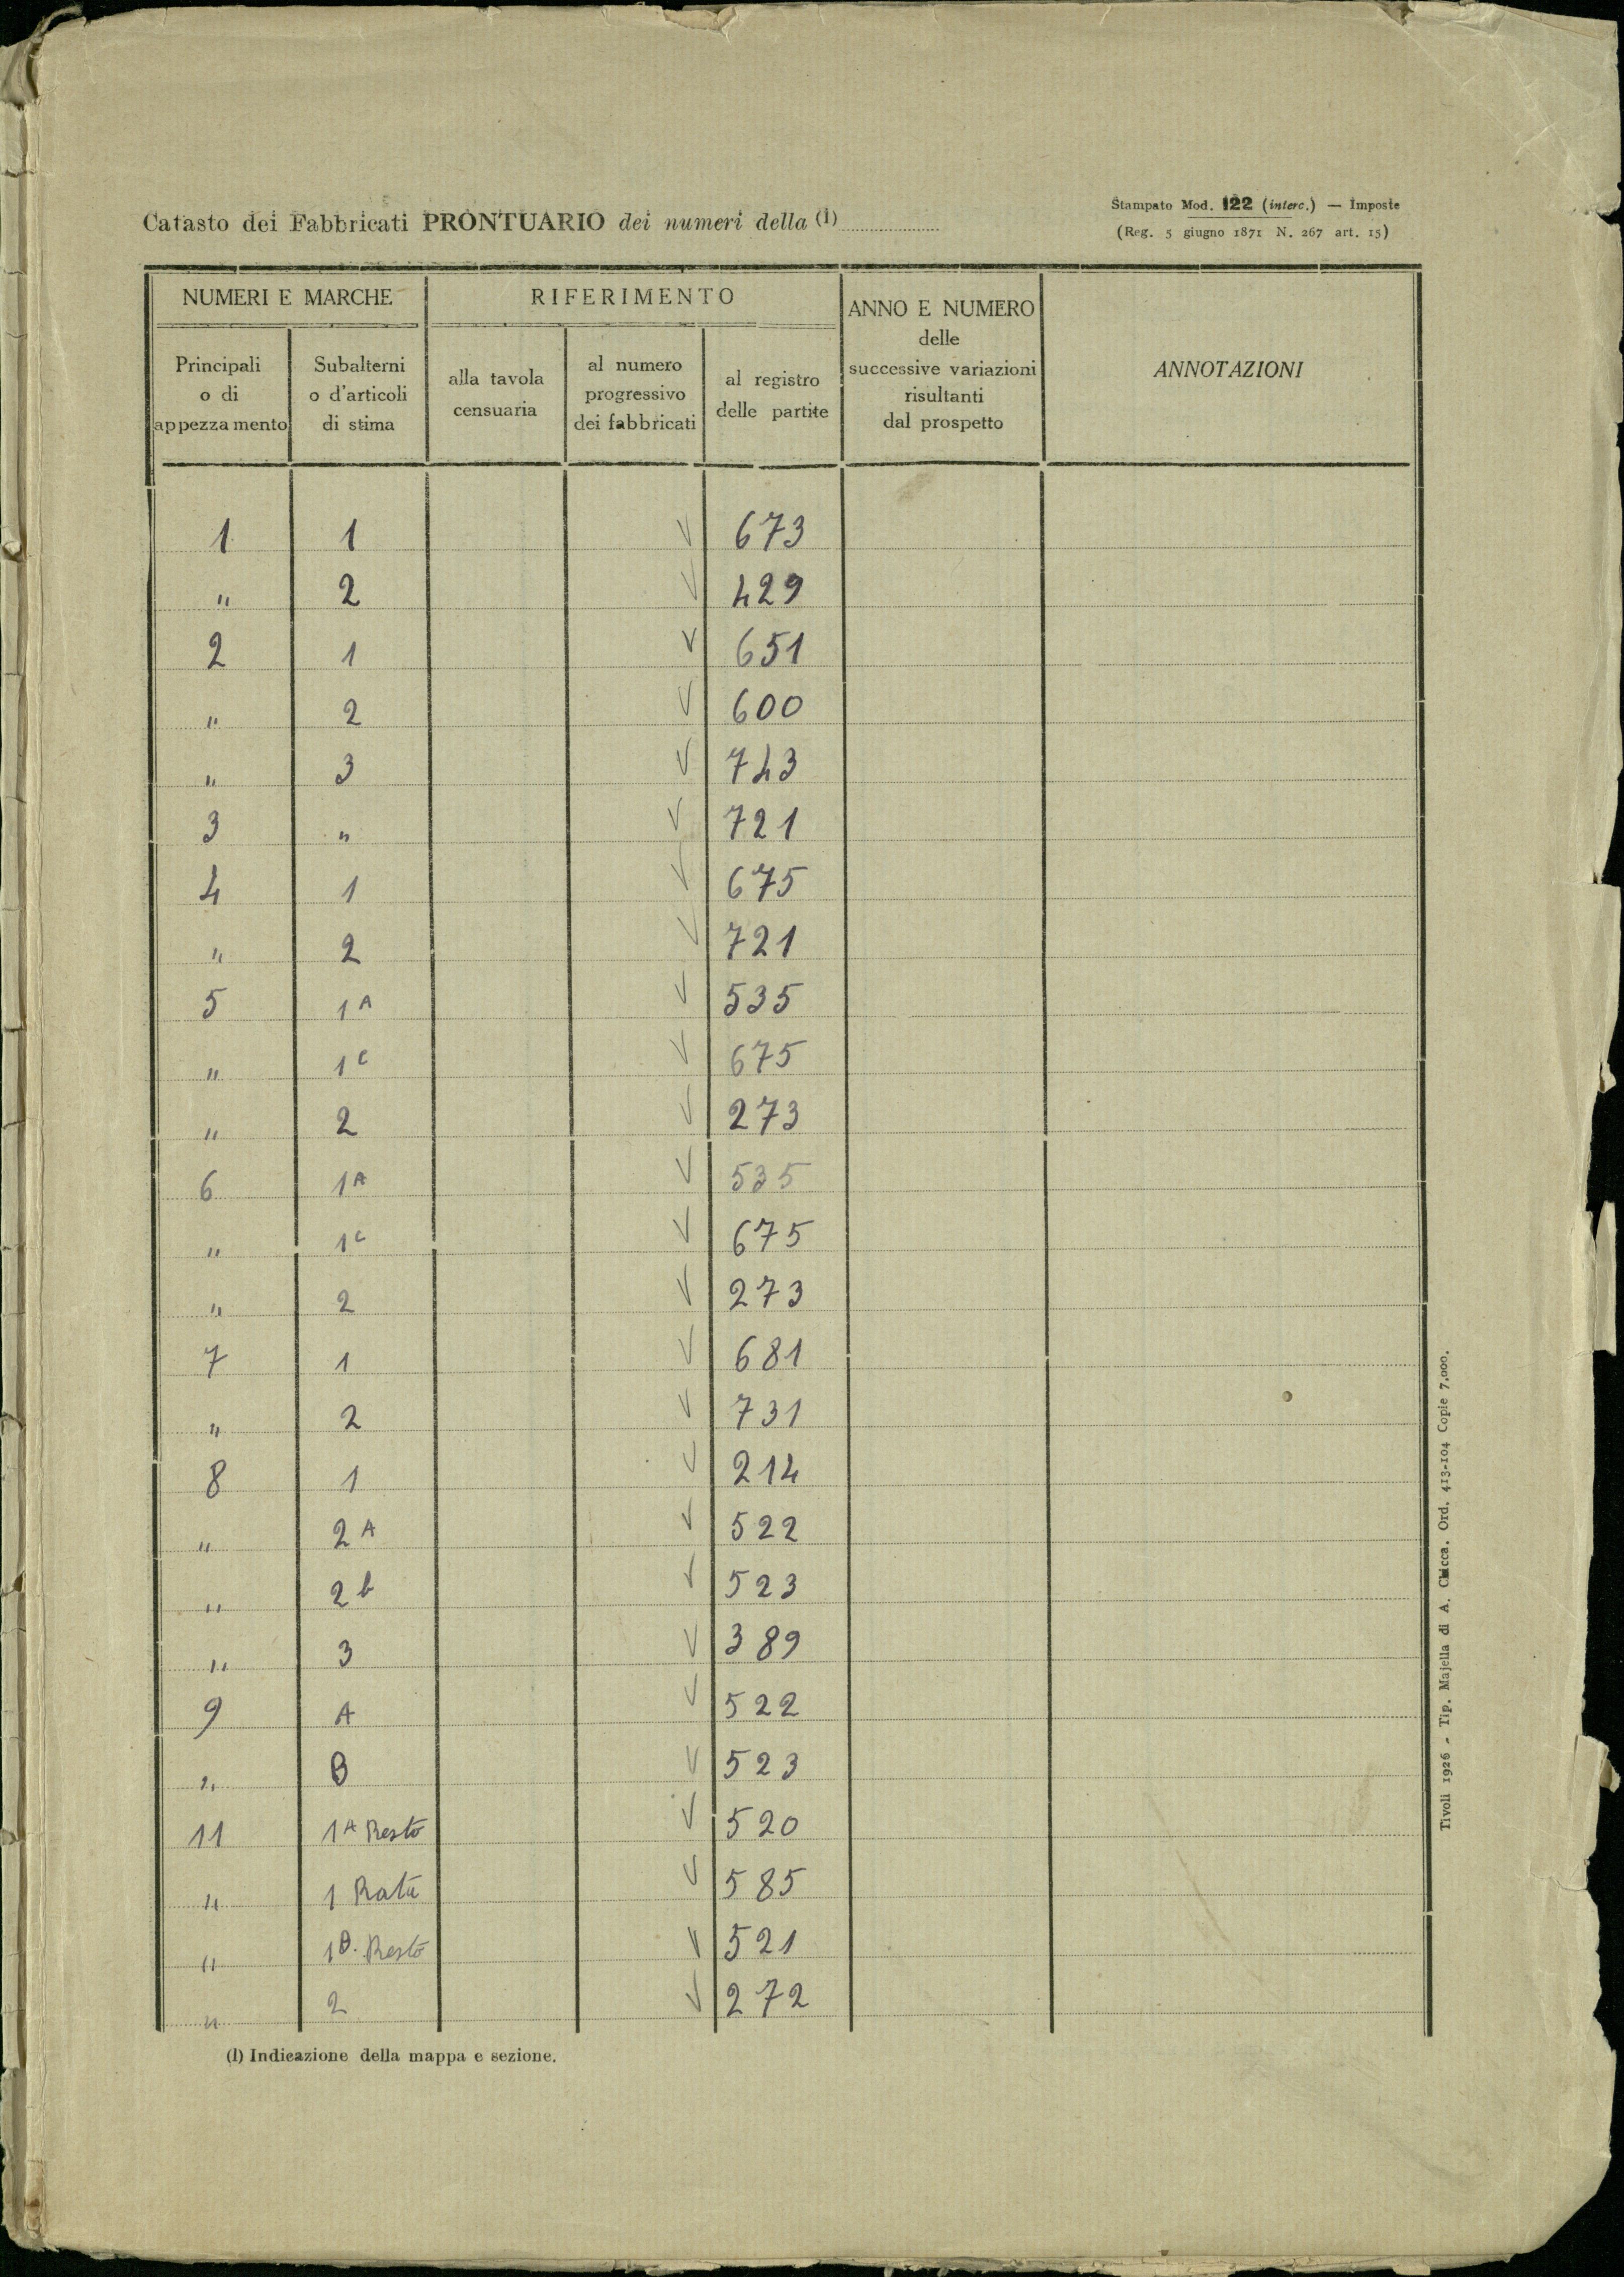 Catasto dei Fabbricati PRONTUARIO dei numeri della (1)
Stampato Mod. 122 (interc.) — Imposte
(Reg. 5 giugno 1871 N. 267 art. 15)
NUMERI E MARCHE
RIFERIMENTO
ANNO E NUMERO
delle
successive variazioni
risultanti
dal prospetto
ANNOTAZIONI
Principali
o di
appezzamento
Subalterni
o d'articoli
di stima
alla tavola
censuaria
al numero
progressivo
dei fabbricati
al registro
delle partite
1 1 √ 673
" 2 √ 429
2 1 √ 651
" 2 √ 600
" 3 √ 743
3 " √ 721
4 1 √ 675
" 2 √ 721
5 1 A √ 535
" 1 C √ 675
" 2 √ 273
6 1 A √ 535
" 1 C √ 675
" 2 √ 273
7 1 √ 681
" 2 √ 731
8 1 √ 214
" 2 A √ 522
" 2 b √ 523
" 3 √ 389
9 A √ 522
" B √ 523
11 1 A Resto √ 520
" 1 Rata √ 585
" 1 B. Resto √ 521
" 2 √ 272
(1) Indicazione della mappa e sezione.
Tivoli 1926 - Tip. Majella di A. Chicca. Ord. 413-104 Copie 7.000.